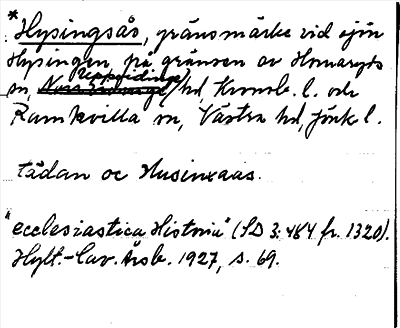 *Hysingsås, gränsmärke vid sjön
Hysingen, på gränsen av Hornaryds
Uppvidinge
sn, hd, Kronob. l. och
Ramkvilla sn, Västra hd, Jönk l.
tädan oc Husinxaas.
"ecclesiastica Historia" (SD 3:484 fr. 1320).
Hylt.-Cav. Årsb. 1927, s. 69.